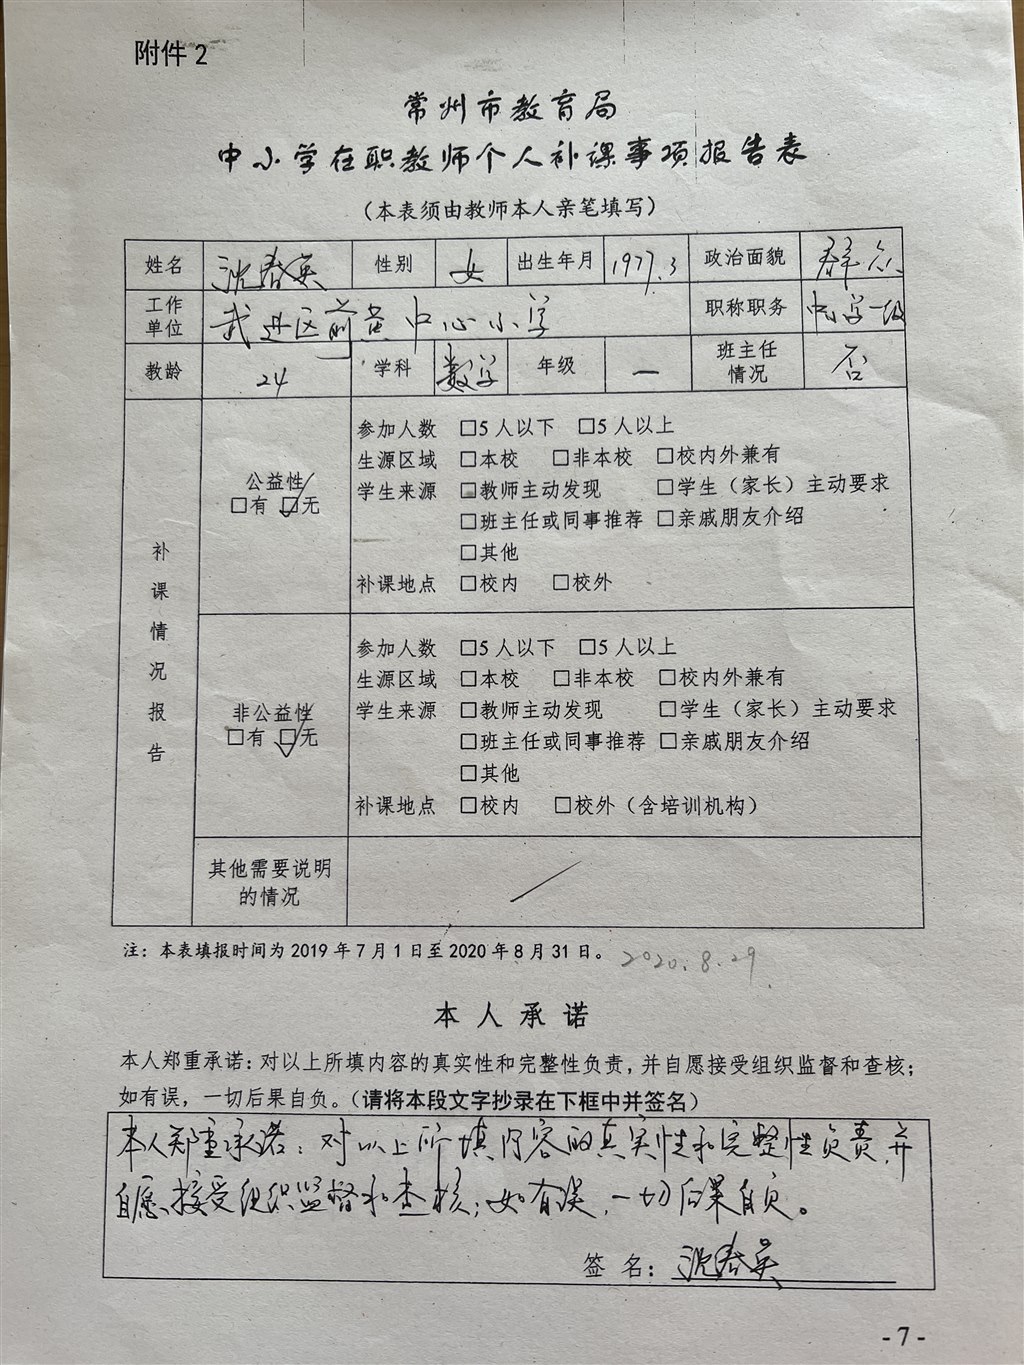 附件2
常州市教育局
中小学在职教师个人补课事项报告表
（本表须由教师本人亲笔填写）
姓名 沈春英 性别 女 出生年月 1977.3 政治面貌 群众
工作单位 武进区前黄中心小学 职称职务 中小学一级
教龄 24 学科 数学 年级 一 班主任情况 否
补课情况报告
公益性
□有 □✓无
参加人数 □5人以下 □5人以上
生源区域 □本校 □非本校 □校内外兼有
学生来源 □教师主动发现 □学生（家长）主动要求
□班主任或同事推荐 □亲戚朋友介绍
□其他
补课地点 □校内 □校外
非公益性
□有 □✓无
参加人数 □5人以下 □5人以上
生源区域 □本校 □非本校 □校内外兼有
学生来源 □教师主动发现 □学生（家长）主动要求
□班主任或同事推荐 □亲戚朋友介绍
□其他
补课地点 □校内 □校外（含培训机构）
其他需要说明
的情况 /
注：本表填报时间为2019年7月1日至2020年8月31日。 2020.8.29
本人承诺
本人郑重承诺：对以上所填内容的真实性和完整性负责，并自愿接受组织监督和查核；
如有误，一切后果自负。（请将本段文字抄录在下框中并签名）
本人郑重承诺：对以上所填内容的真实性和完整性负责，并
自愿接受组织监督和查核；如有误，一切后果自负。
签名：沈春英
-7-